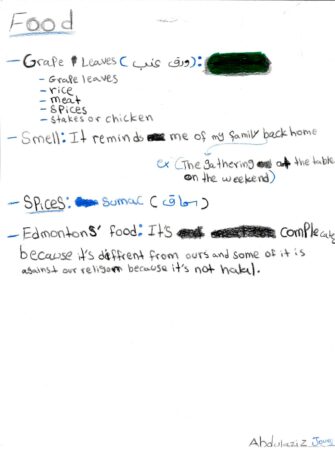 Food
- Grape Leaves (ورق عنب):
- Grape leaves
- rice
- meat
- Spices
- Stakes or chicken
- Smell: It remind me of my family back home
ex (The gathering at the table
on the weekend)
- Spices: Sumac (سماق)
- Edmontons' food: It's
because it's diffrent from ours and some of it is
against our religon because it's not halal.
Abdulaziz